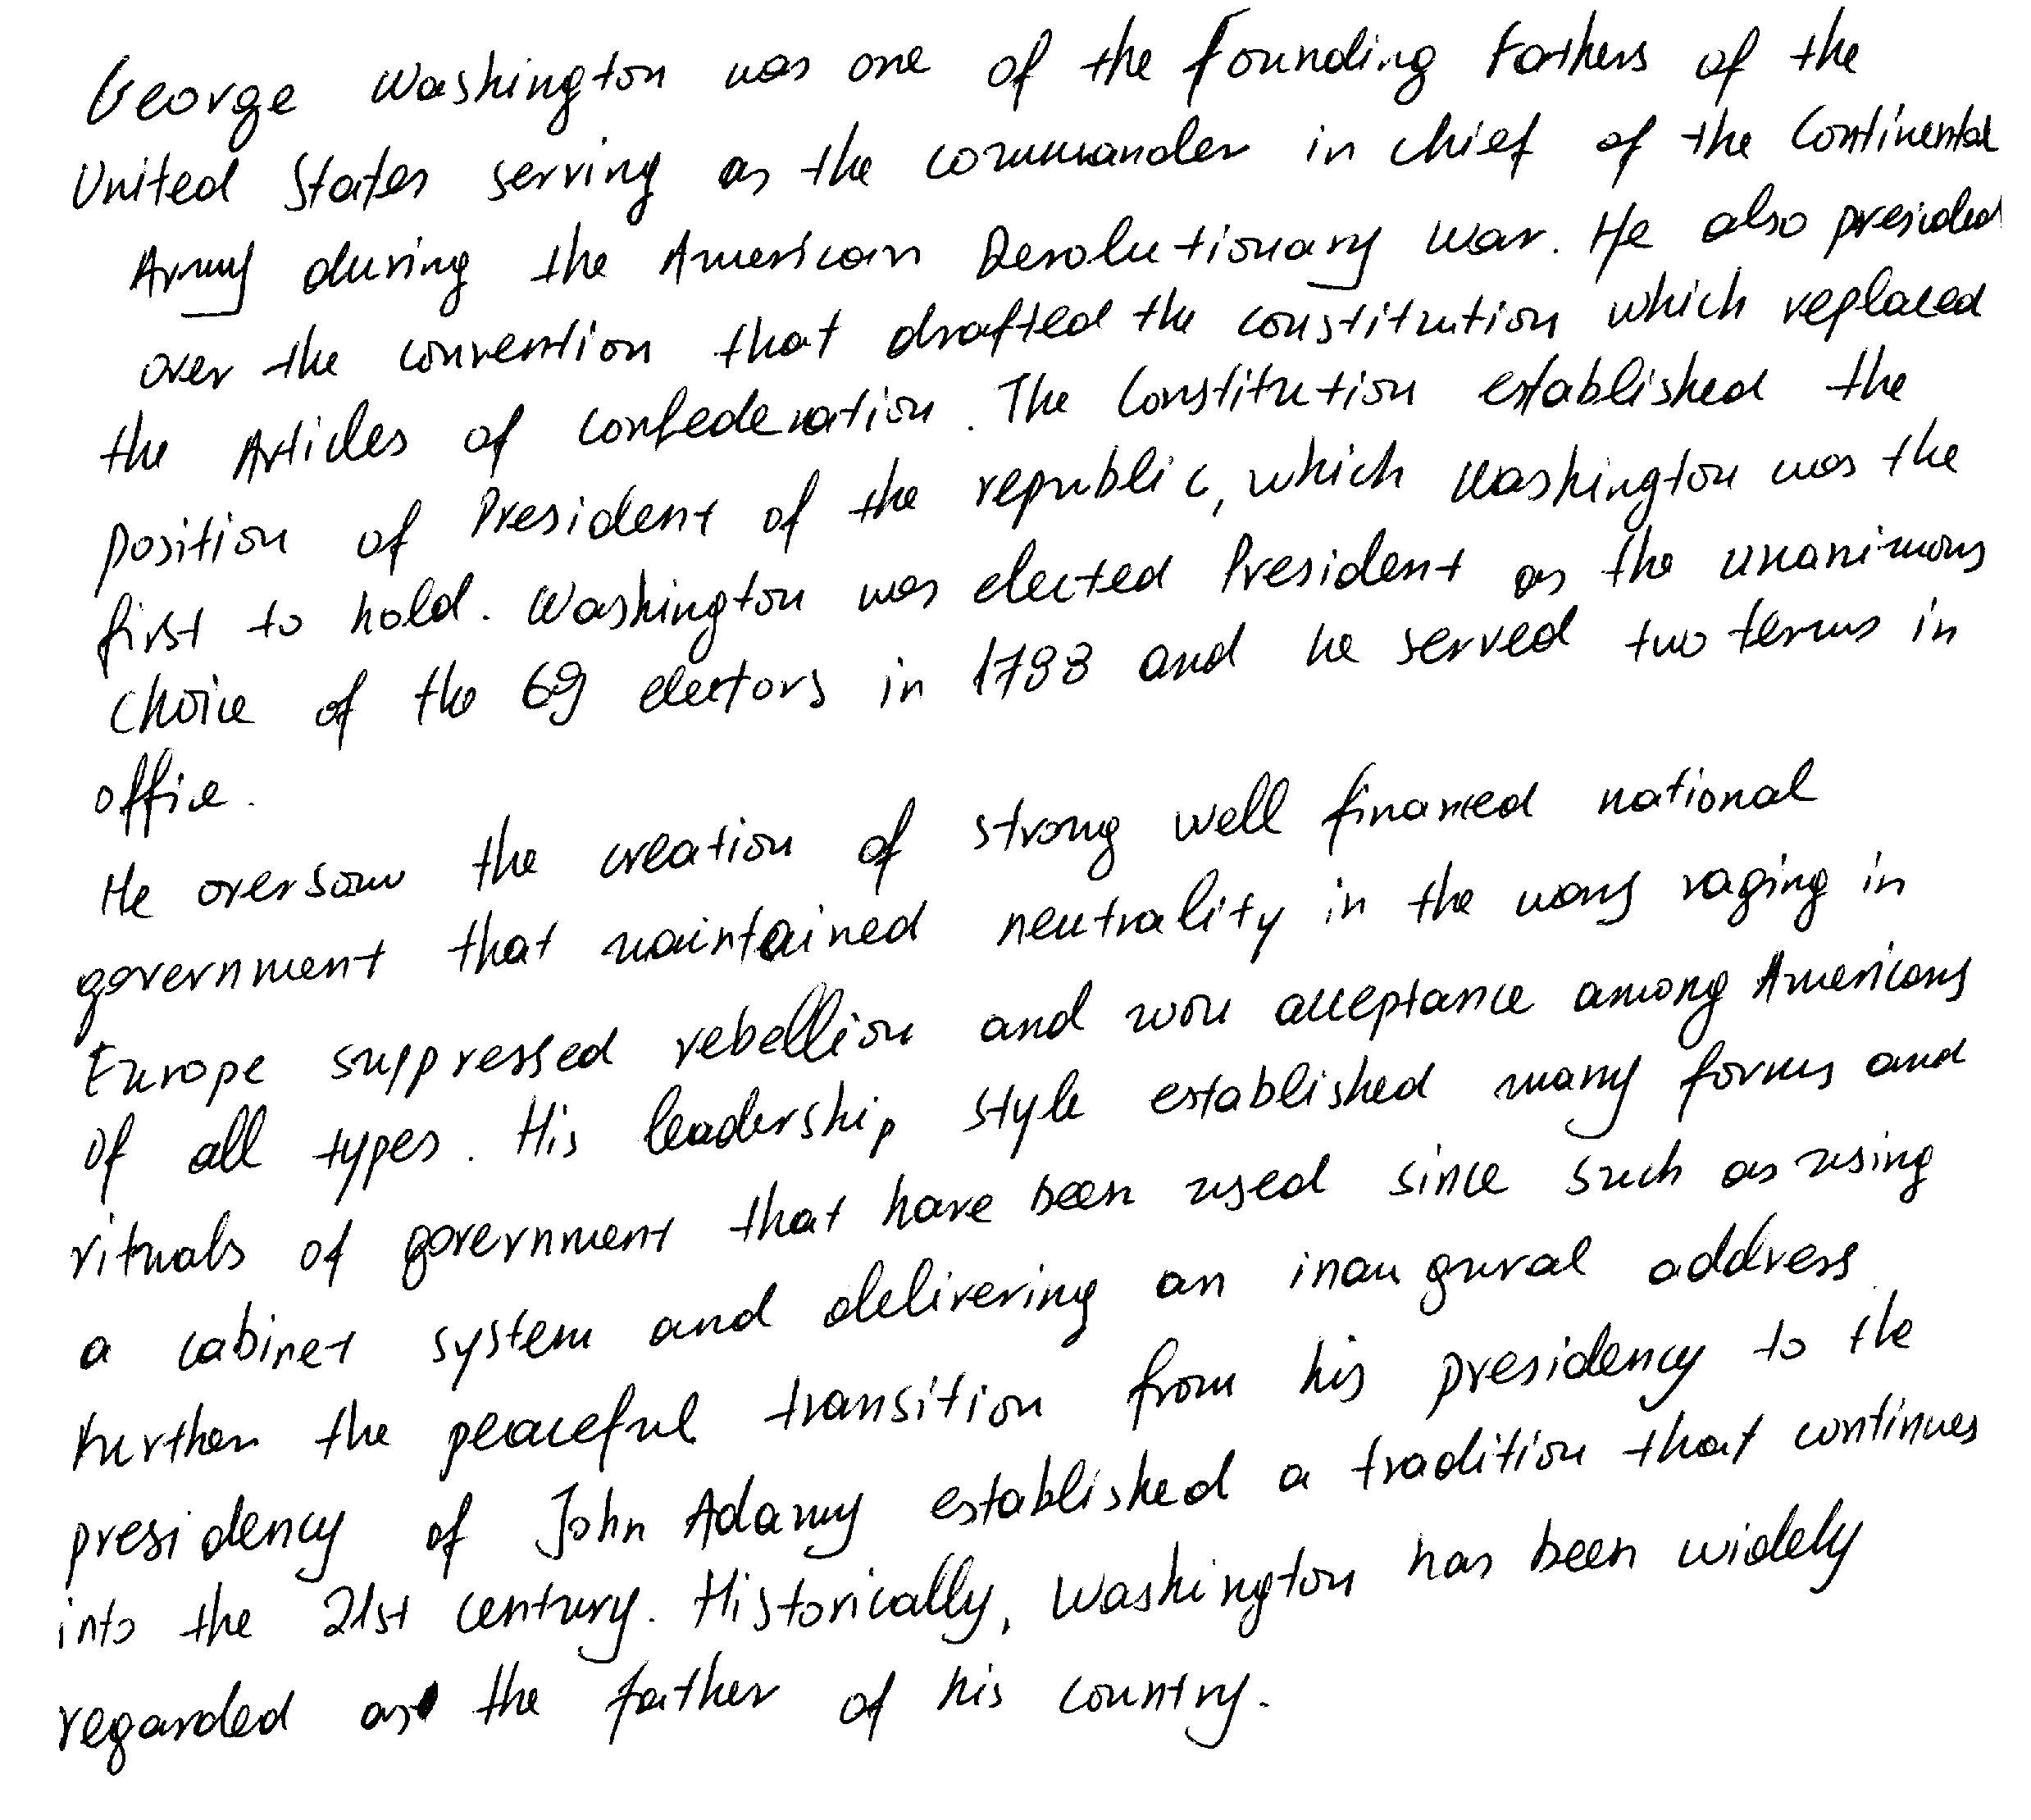 George Washington was one of the founding Fathers of the
United States serving as the commander in chief of the Continental
Army during the American Revolutionary War. He also presided
over the convention that drafted the constitution which replaced
the Articles of Confederation. The Constitution established the
position of President of the republic, which Washington was the
first to hold. Washington was elected President as the unanimous
choice of the 69 electors in 1788 and he served two terms in
office.
He oversaw the creation of strong well financed national
government that maintained neutrality in the wars raging in
Europe suppressed rebellion and won acceptance among Americans
of all types. His leadership style established many forms and
rituals of government that have been used since such as using
a cabinet system and delivering an inaugural address.
Further the peaceful transition from his presidency to the
presidency of John Adams established a tradition that continues
into the 21st century. Historically, Washington has been widely
regarded as the father of his country.